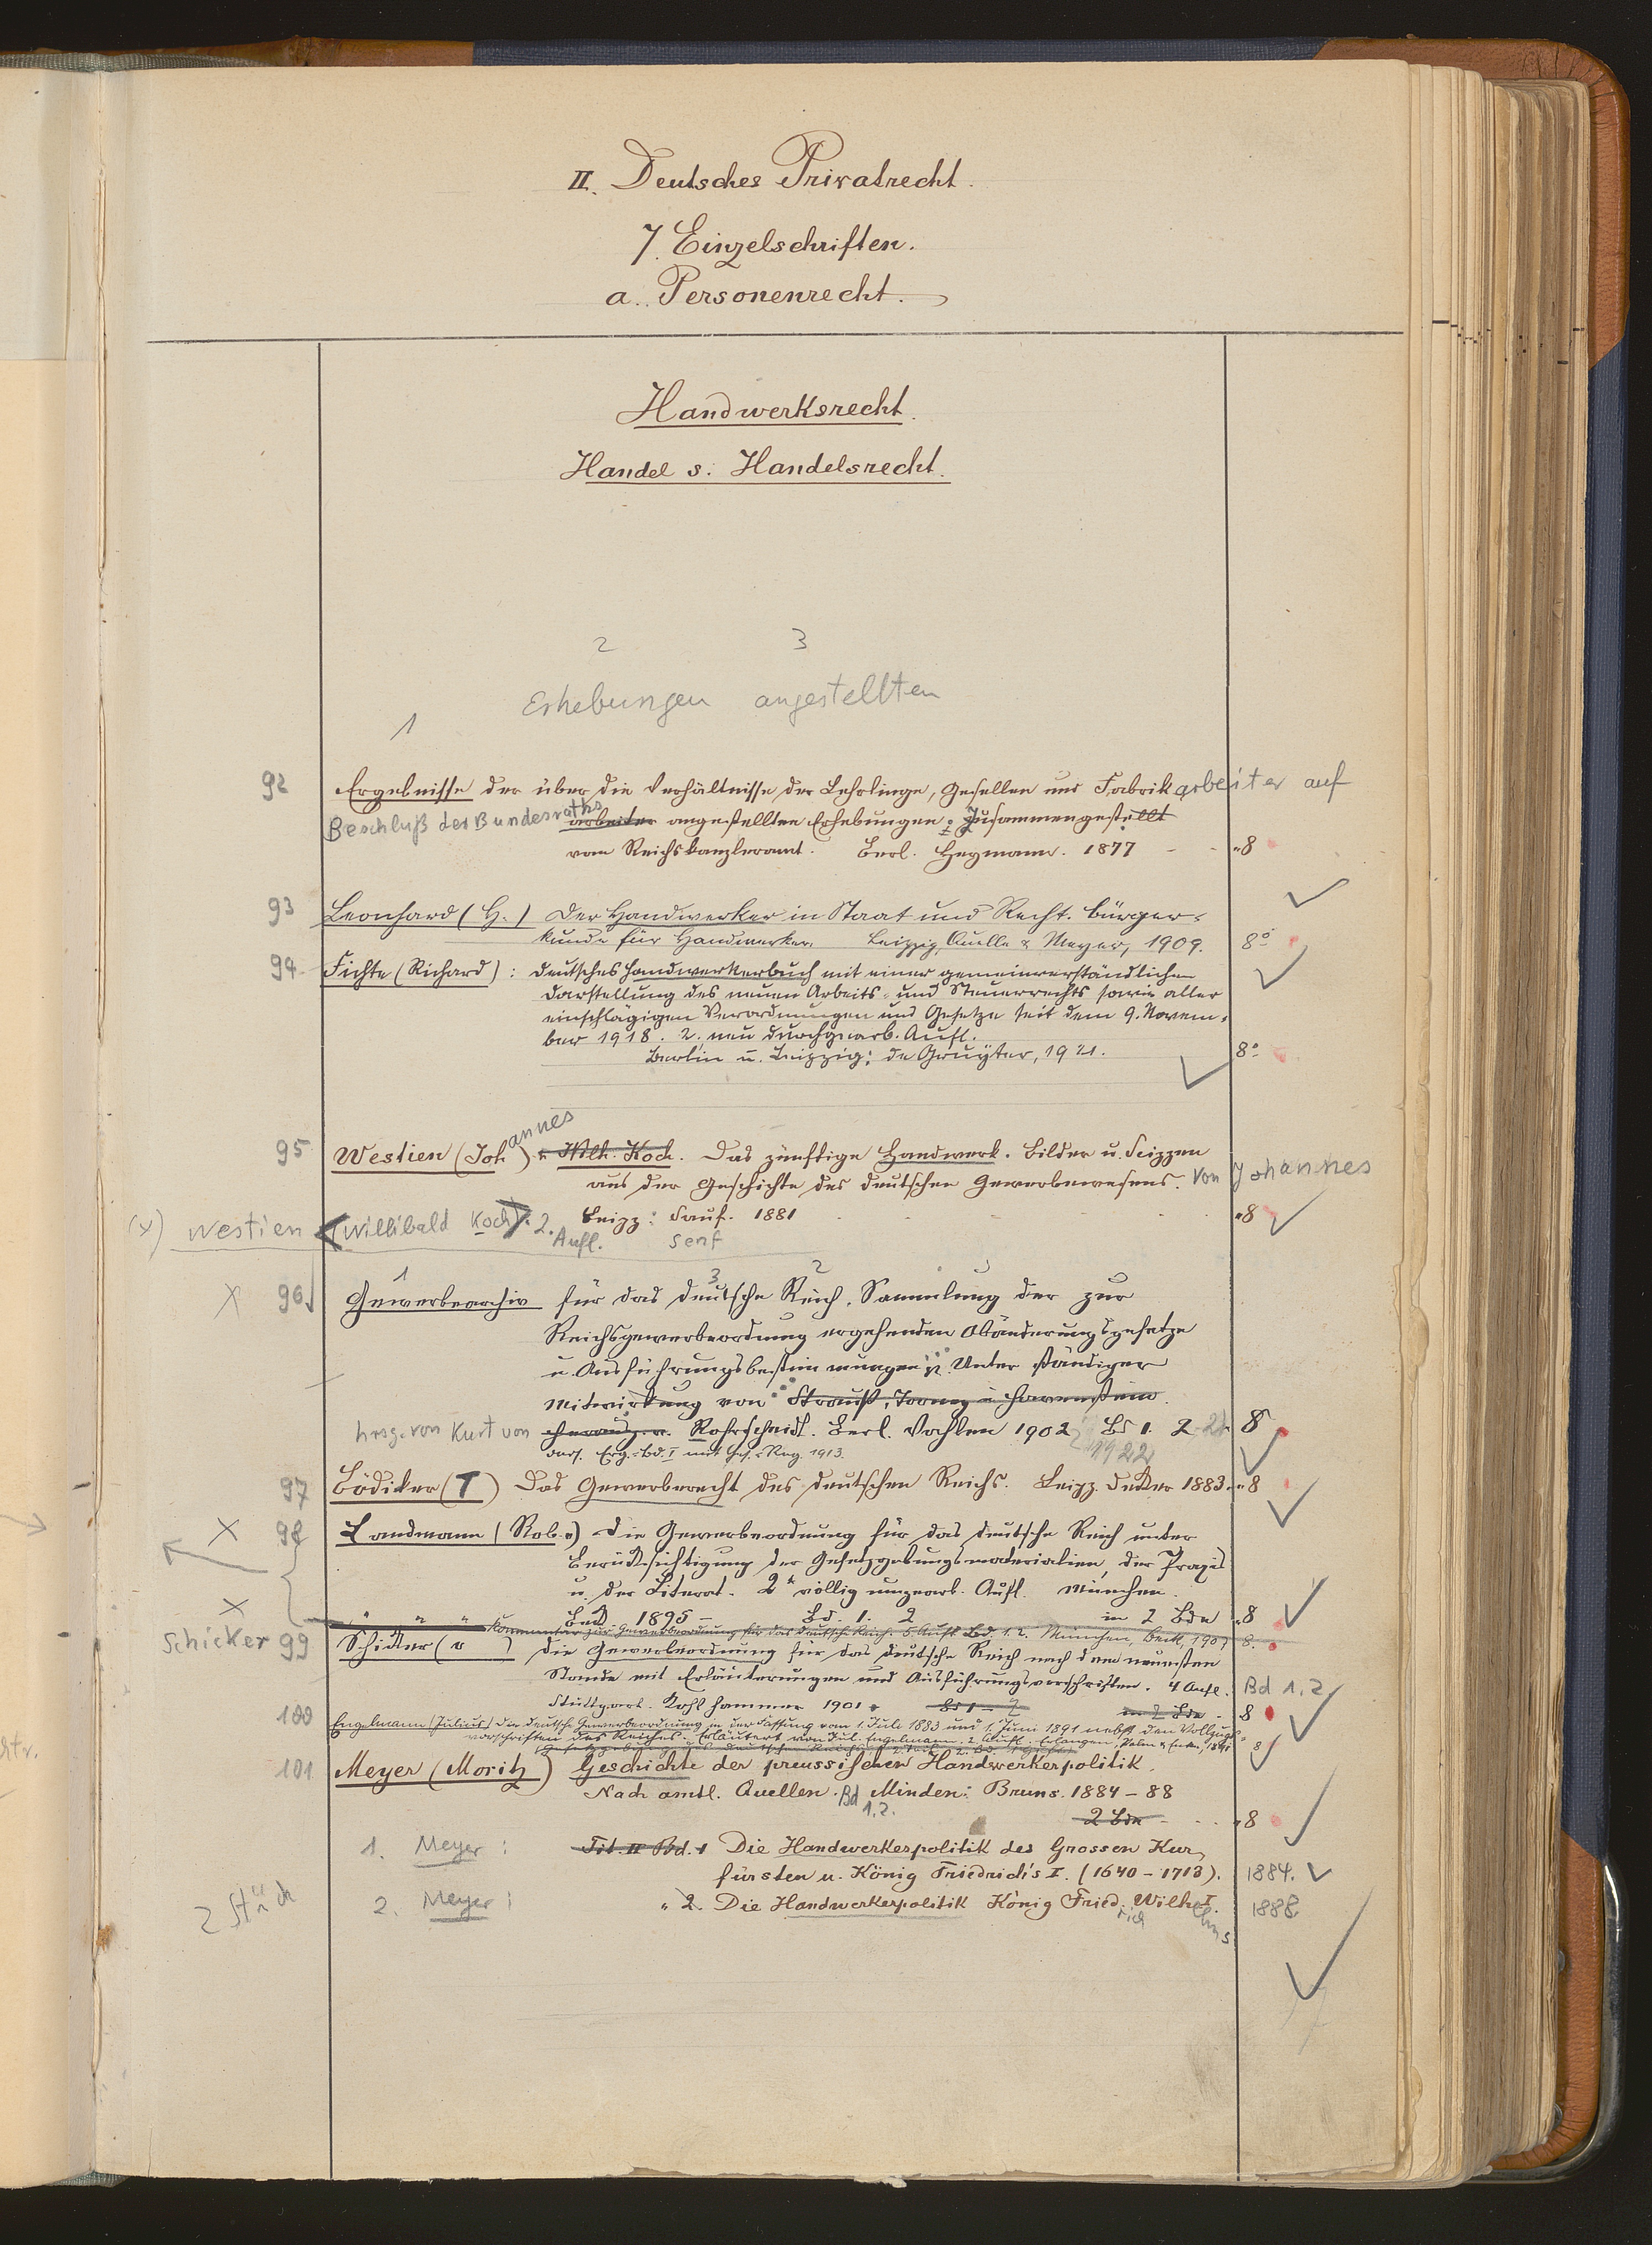 II. Deutsches Privatrecht.
7. Einzelschriften.
a. Personenrecht.
Handwerksrecht.
Handel s. Handelsrecht.
2 3
Erhebungen angestellten
1
92 Ergebnisse der über die Verhältnisse der Lehrlinge, Gesellen und Fabrik arbeiter auf
Beschluß des Bundesraths arbeiter angestellten Erhebungen; Zusammengestellt
vom Reichskanzleramt. Berl. Heymann. 1877 - - "8
93 Leonhard (H.) Der Handwerker in Staat und Recht. Bürger-
kunde für Handwerker. Leipzig, Quelle & Meyer, 1909. 8°
94 Fichte (Richard): Deutsches Handwerkerbuch mit einer gemeinverständlichen
Darstellung des neuen Arbeits- und Steuerrechts sowie aller
einschlägigen Verordnungen und Gesetze seit dem 9. Novem-
ber 1918. 2. neu durchgearb. Aufl.
Berlin u. Leipzig: de Gruyter, 1921. 8°
95 Westien (Johannes) u. Wilh. Koch. Das zünftige Handwerk. Bilder u. Scizzen
aus der Geschichte des deutschen Gewerbewesens. Von Johannes
(x) Westien (Willibald Koch). 2. Aufl. Leipz: Senf. 1881 "8
Senf
1 3 2
x 96 Gewerbearchiv für das Deutsche Reich. Sammlung der zur
Reichsgewerbeordnung ergehenden Abänderungsgesetze
u. Ausführungsbestimmungen pp. Unter ständiger
Mitwirkung von Strauß, Torney u. Havenstein
hrsg. von Kurt von herausg. v. Rohrscheidt. Berl. Vahlen 1902 Bd 1. 2-21 8
dass. Erg.-Bd. I mit Ges.-Reg. 1913. 1922
97 Bödiker (T) Das Gewerberecht des deutschen Reichs. Leipz. Decker 1883. "8
x 98 Landmann (Rob. v) Die Gewerbeordnung für das deutsche Reich unter
Berücksichtigung der Gesetzgebungsmaterialien, der Praxis
u. der Literat. 2te völlig umgearb. Aufl. München.
x Beck 1895 - Bd. 1. 2 in 2 Bdn "8
" " " Kommentar zur Gewerbeordnung für das Deutsche Reich. 5 Aufl. Bd. 1. 2. München, Beck, 1907 8.
Schicker 99 Schicker (v ) Die Gewerbeordnung für das Deutsche Reich nach dem neuesten
Stande mit Erläuterungen und Ausführungsvorschriften. 4 Aufl. Bd 1, 2
Stuttgart. Kohlhammer 1901 Bd 1 - 2 in 2 Bdn - 8
100 Engelmann (Julius) Die deutsche Gewerbeordnung in der Fassung vom 1. Juli 1883 und 1. Juni 1891 nebst den Vollzugs-
vorschriften des Reiches. Erläutert von Jul. Engelmann. 2 Aufl. Erlangen, Palm & Enke, 1891 8
101 Meyer (Moritz) Geschichte der preussischen Handwerkerpolitik.
Nach amtl. Quellen. Bd 1.2. Minden: Bruns. 1884-88
2 Bdn - "8
1. Meyer: Tit. II Bd. 1 Die Handwerkerpolitik des Grossen Kur-
fürsten u. König Friedrich's I. (1640-1713). 1884.
2 Stück 2. Meyer: " 2. Die Handwerkerpolitik König Friedrich Wilhelms I. 1888.